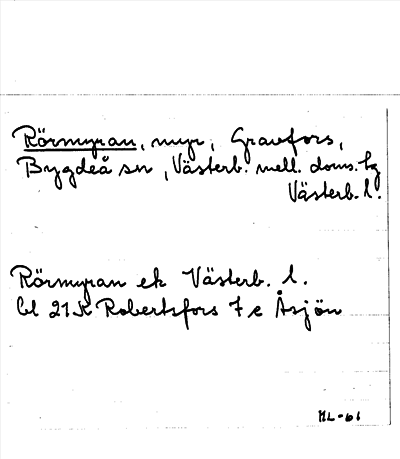 Rörmyran, myr, Gravfors,
Bygdeå sn, Västerb. mell. doms. hg
Västerb. l.
Rörmyran ek Västerb. l.
bl 21K Robertsfors 7 e Åsjön
ML-61